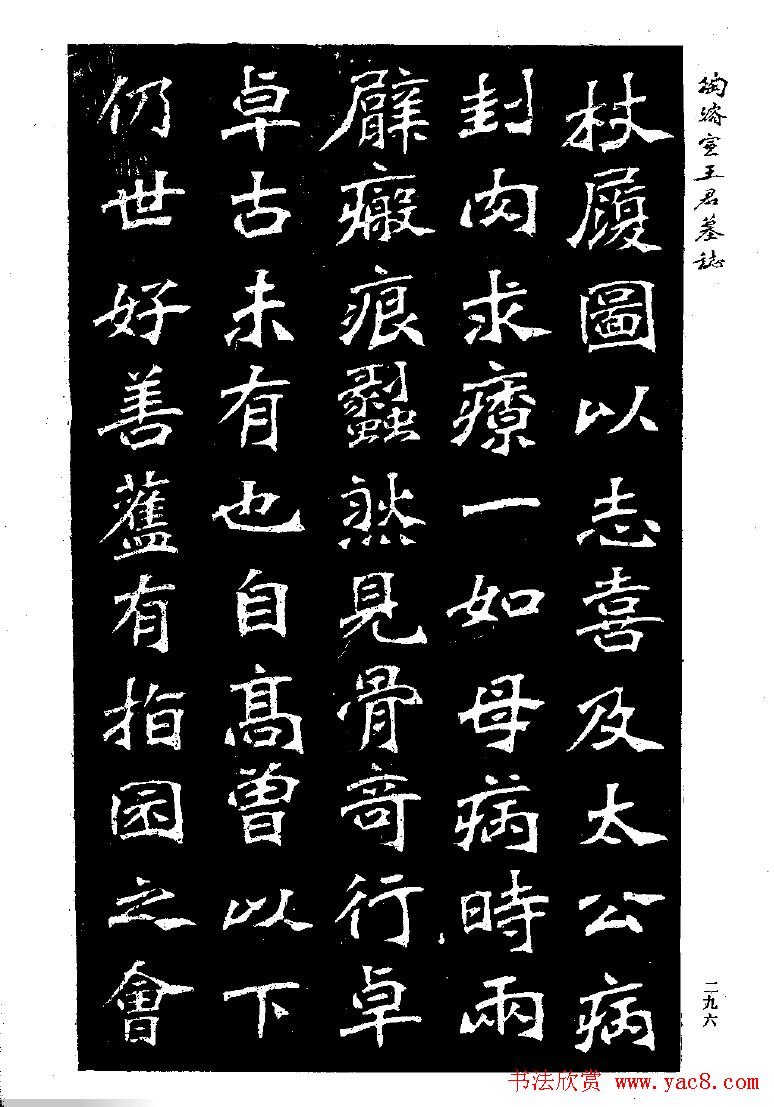 陶濬宣王君墓誌
杖履圖以志喜及太公病
刲肉求療一如母病時兩
臂瘢痕劙然見骨奇行卓
卓古未有也自高曾以下
仍世好善舊有指囷之會
二九六
书法欣赏 www.yac8.com